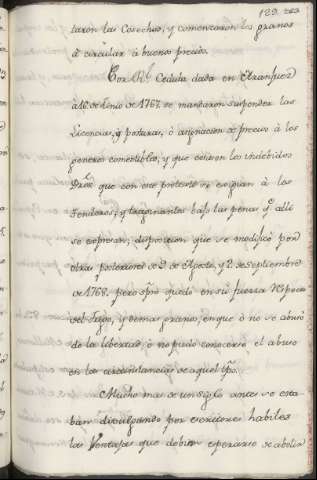 129
taron las Cosechas, y comenzaron los granos
á circular á buenos precios.
Por Rl Cedula dada en Aranjuez
á 16 de Junio de 1767. se mandaron suspender las
Licencias, y posturas, ó asignacion de precios á los
generos comestibles, y que cesasen los indebidos
que con este pretexto se exigian á los
Vendedores, y tragineros bajo las penas q. alli
se expresan; disposicion que se modificó por
otras posteriores de 2 de Agosto, y 2 de Septiembre
de 1768. pero spre quedó en su fuerza respecto
del trigo, y demas granos, en que ó no se abusó
de la libertad, ó no pudo conocerse el abuso
en las circunstancias de aquel tpo.
Mucho mas de un siglo antes se esta
ban divulgando por escritores habiles
las Ventajas que debian esperarse de abolir